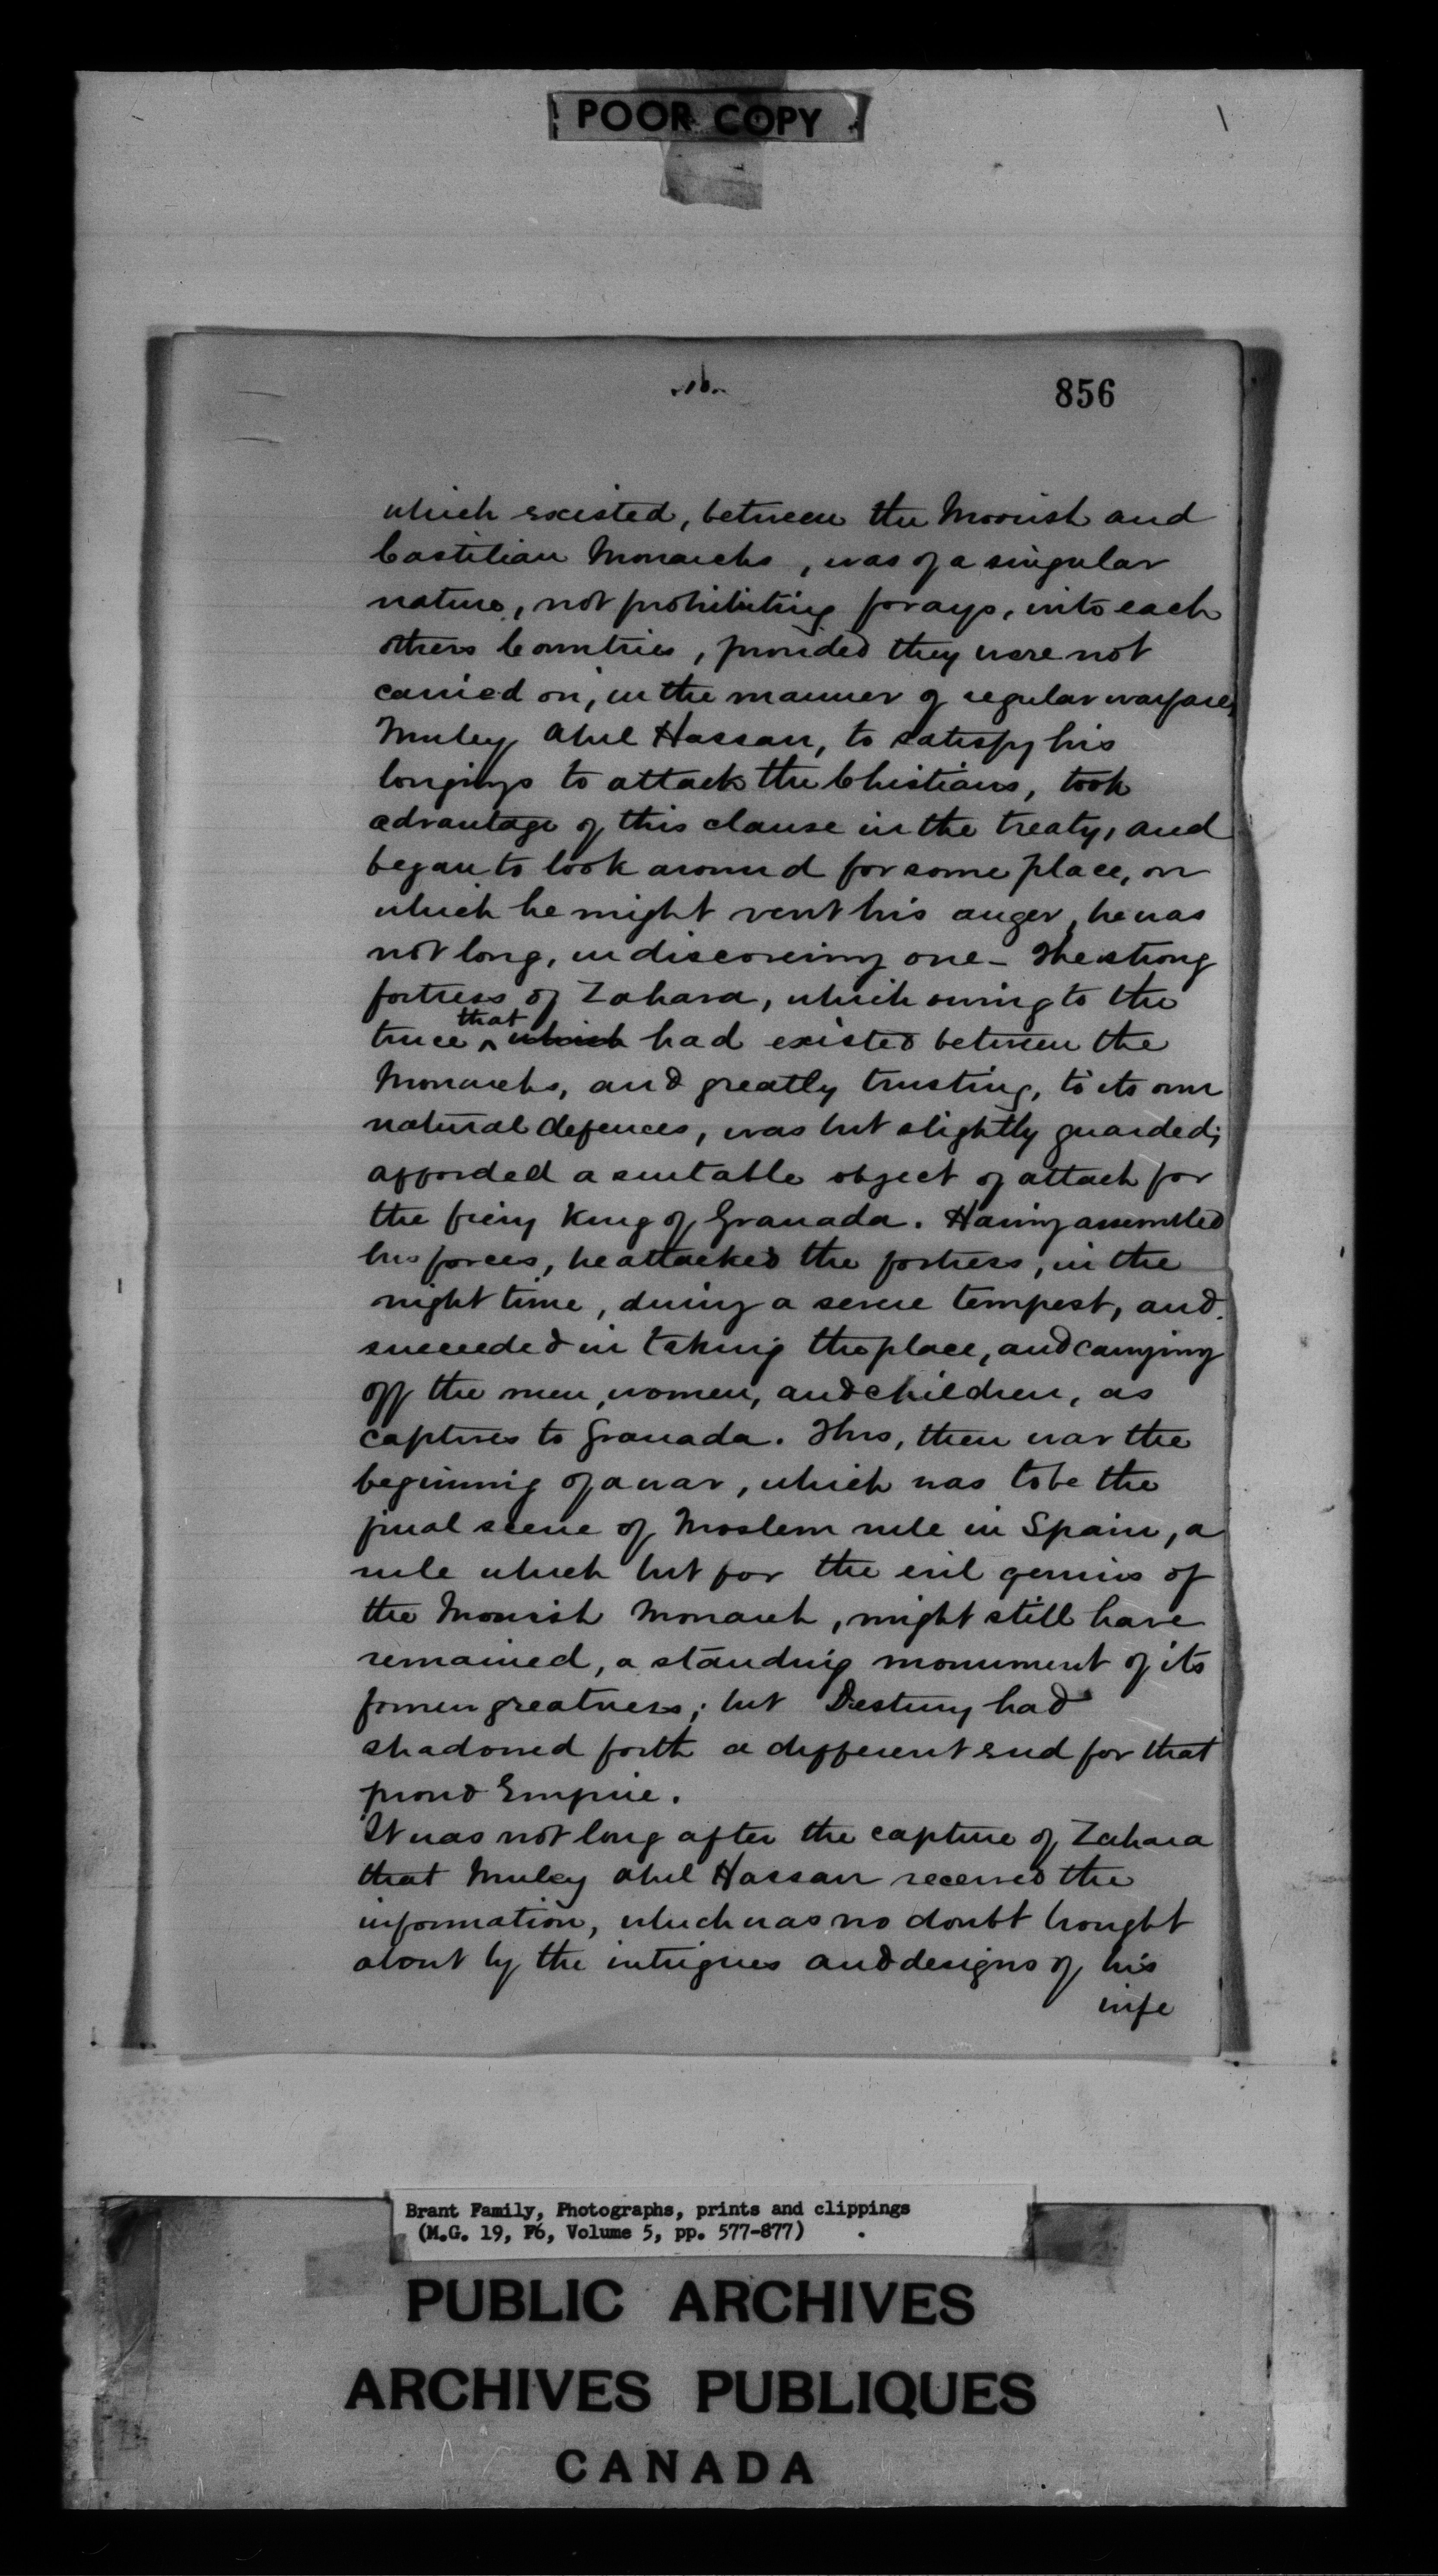 POOR COPY
856
which existed, between the Moorish and
Castilian Monarchs, was of a singular
nature, not prohibiting forays, into each
others Countries, provided they were not
carried on, in the manner of regular warfare,
Muley Abul Hassan, to satisfy his
longings to attack the Christians, took
advantage of this clause in the treaty, and
began to look around for some place, on
which he might vent his anger, he was
not long, in discovering one - The strong
fortress of Zahara, which owing to the
that
truce ^ which had existed between the
Monarchs, and greatly trusting, to its own
natural defences, was but slightly guarded;
afforded a suitable object of attack for
the fiery King of Granada. Having assembled
his forces, he attacked the fortress, in the
night time, during a severe tempest, and
succeeded in taking the place, and carrying
off the men, women, and children, as
captives to Granada. This, then was the
beginning of a war, which was to be the
final scene of Moslem rule in Spain, a
rule which but for the evil genius of
the Moorish Monarch, might still have
remained, a standing monument of its
former greatness; but Destiny had
shadowed forth a different end for that
proud Empire.
It was not long after the capture of Zahara
that Muley Abul Hassan received the
information, which was no doubt brought
about by the intrigues and designs of his
wife
Brant Family, Photographs, prints and clippings
(M.G. 19, F6, Volume 5, pp. 577-877)
PUBLIC ARCHIVES
ARCHIVES PUBLIQUES
CANADA